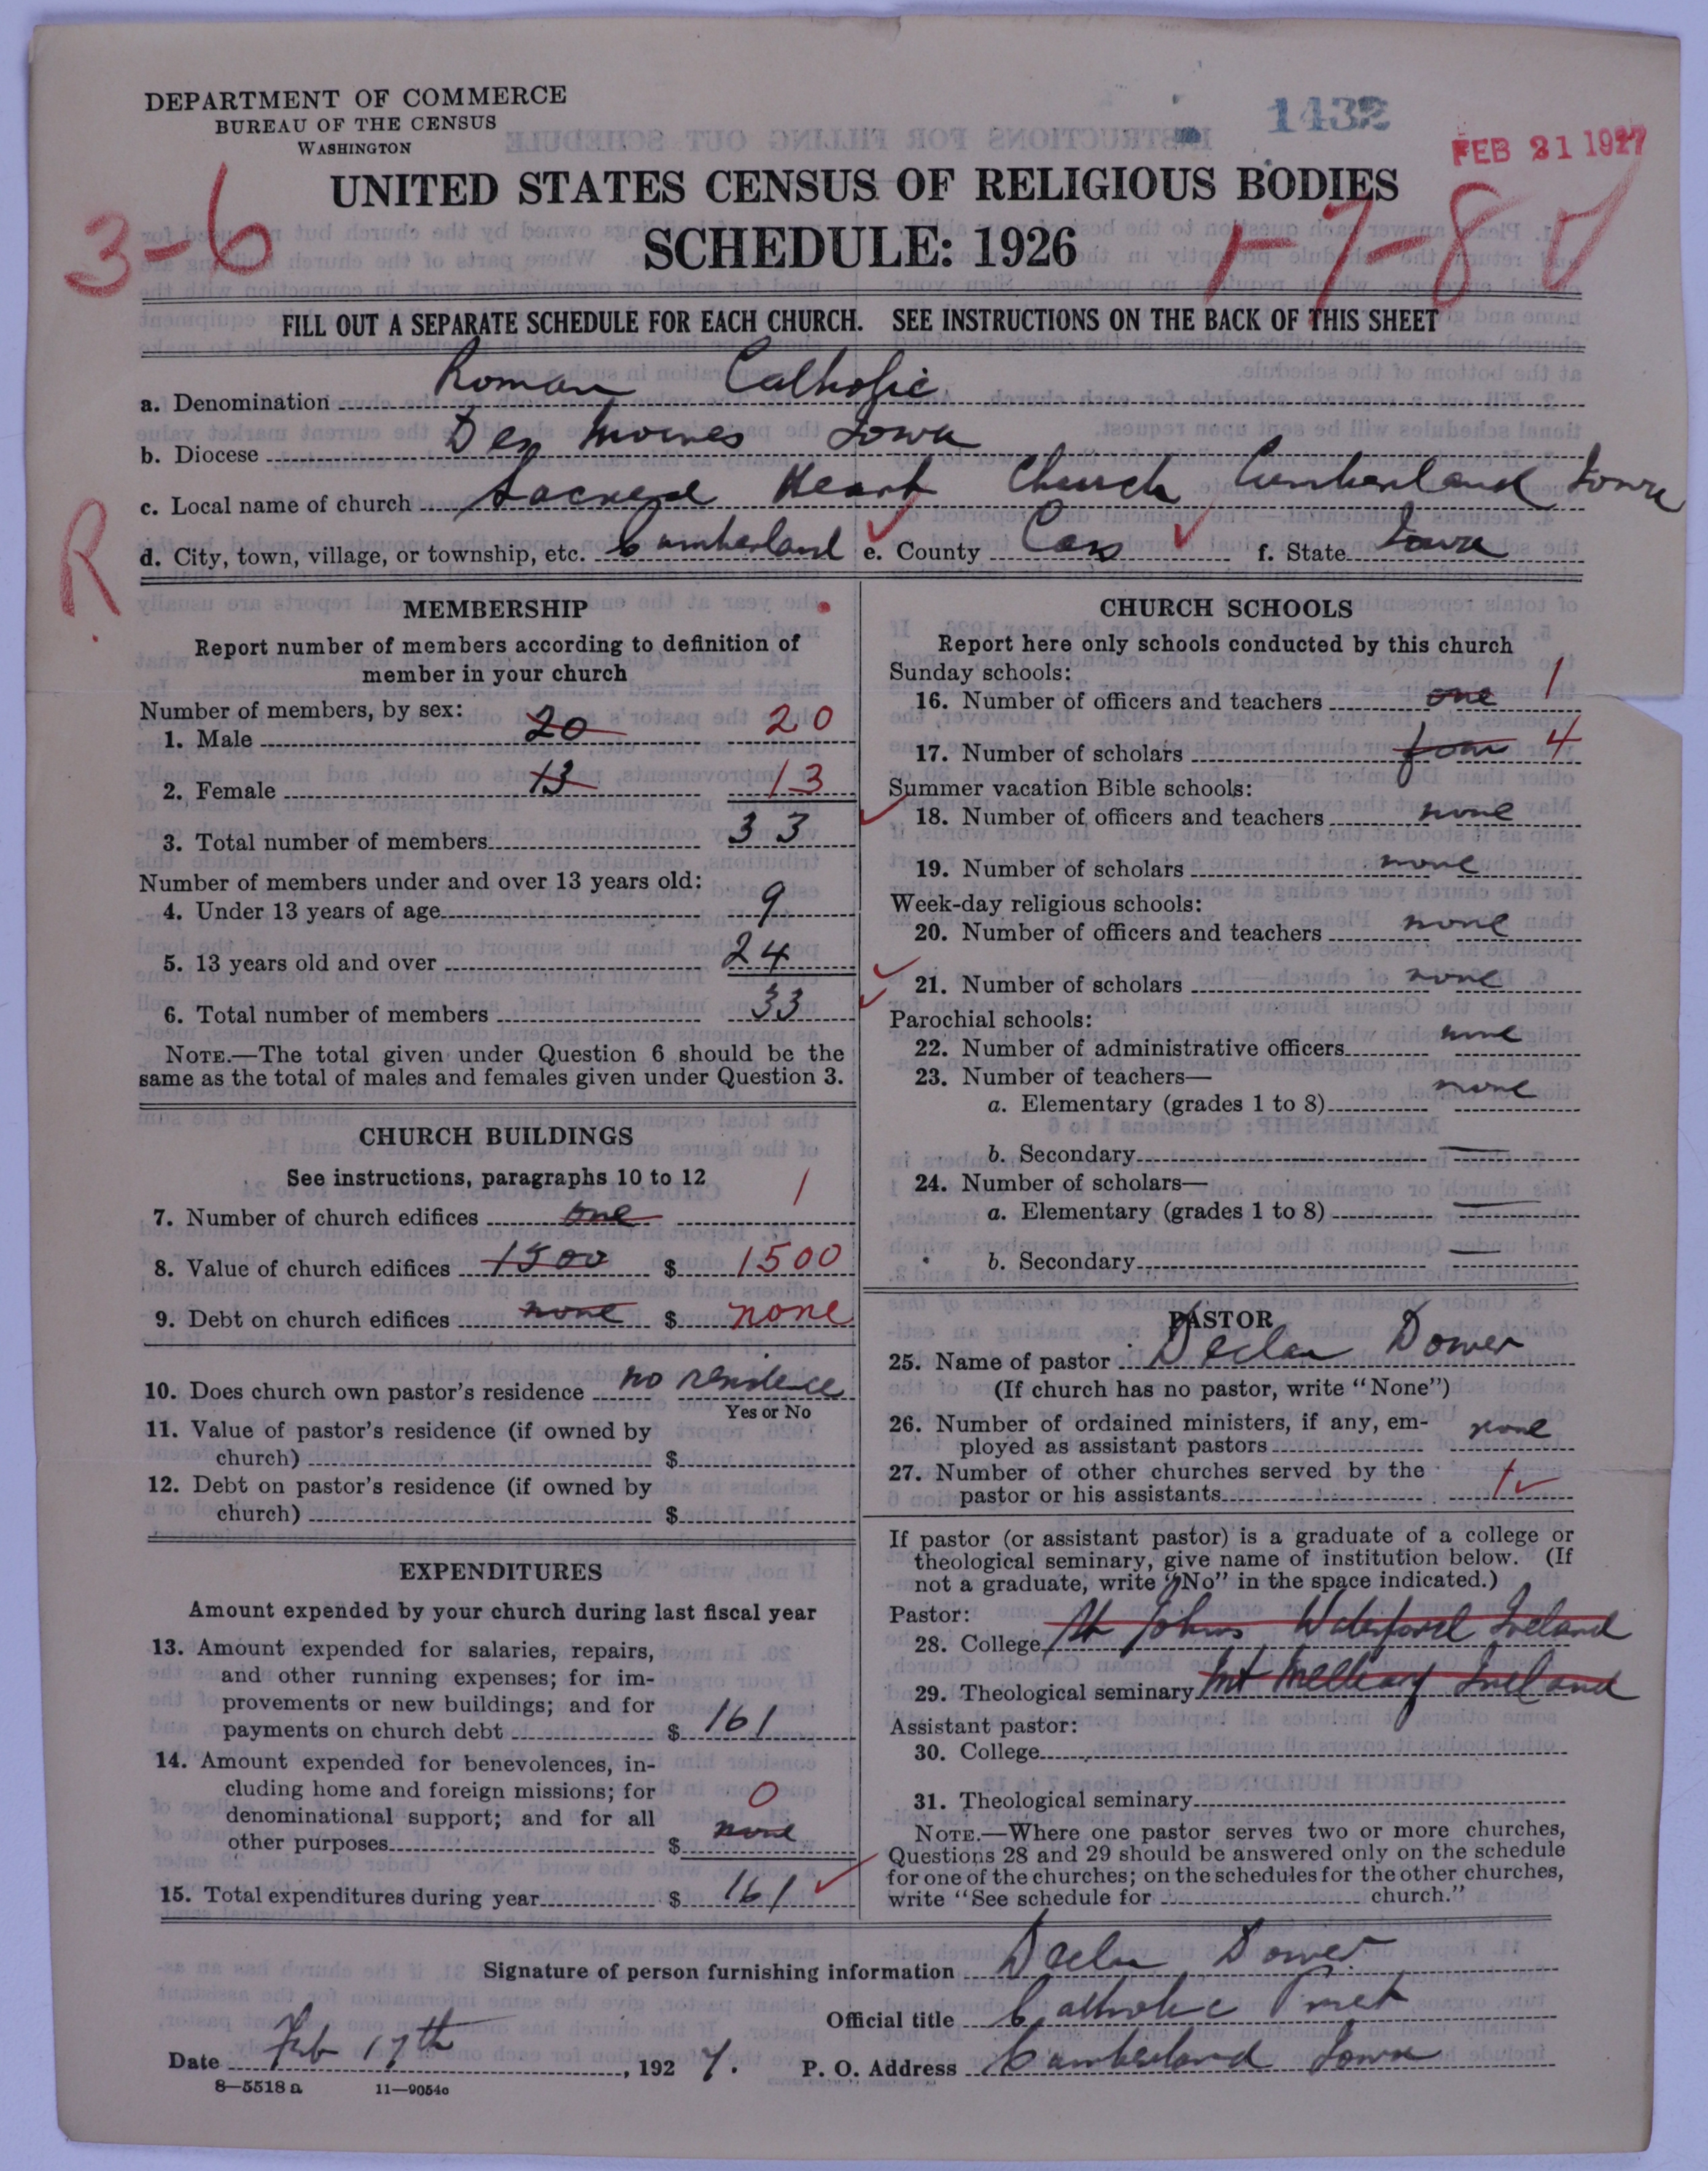 DEPARTMENT OF COMMERCE
BUREAU OF THE CENSUS
WASHINGTON
1432
FEB 21 1927
UNITED STATES CENSUS OF RELIGIOUS BODIES
SCHEDULE: 1926
3-6
1-7-8
FILL OUT A SEPARATE SCHEDULE FOR EACH CHURCH. SEE INSTRUCTIONS ON THE BACK OF THIS SHEET
a. Denomination Roman Catholic
b. Diocese Des Moines Iowa
c. Local name of church Sacred Heart Church Cumberland Iowa
R
d. City, town, village, or township, etc. Cumberland e. County Cass f. State Iowa
MEMBERSHIP
Report number of members according to definition of
member in your church
Number of members, by sex:
1. Male 20 20
2. Female 13 13
3. Total number of members 33
Number of members under and over 13 years old:
4. Under 13 years of age 9
5. 13 years old and over 24
6. Total number of members 33
NOTE.—The total given under Question 6 should be the
same as the total of males and females given under Question 3.
CHURCH BUILDINGS
See instructions, paragraphs 10 to 12
7. Number of church edifices one 1
8. Value of church edifices 1500 $ 1500
9. Debt on church edifices none $ none
10. Does church own pastor's residence no residence
Yes or No
11. Value of pastor's residence (if owned by
church) $
12. Debt on pastor's residence (if owned by
church) $
EXPENDITURES
Amount expended by your church during last fiscal year
13. Amount expended for salaries, repairs,
and other running expenses; for im-
provements or new buildings; and for
payments on church debt $ 161
14. Amount expended for benevolences, in-
cluding home and foreign missions; for
denominational support; and for all 0
other purposes $ none
15. Total expenditures during year $ 161
CHURCH SCHOOLS
Report here only schools conducted by this church
Sunday schools:
16. Number of officers and teachers one 1
17. Number of scholars four 4
Summer vacation Bible schools:
18. Number of officers and teachers none
19. Number of scholars none
Week-day religious schools:
20. Number of officers and teachers none
21. Number of scholars none
Parochial schools:
22. Number of administrative officers none
23. Number of teachers—
a. Elementary (grades 1 to 8) none
b. Secondary —
24. Number of scholars—
a. Elementary (grades 1 to 8) —
b. Secondary —
PASTOR
25. Name of pastor Declan Dower
(If church has no pastor, write "None")
26. Number of ordained ministers, if any, em-
ployed as assistant pastors none
27. Number of other churches served by the
pastor or his assistants 1
If pastor (or assistant pastor) is a graduate of a college or
theological seminary, give name of institution below. (If
not a graduate, write "No" in the space indicated.)
Pastor:
28. College St Johns Waterford Ireland
29. Theological seminary Mt Melleray Ireland
Assistant pastor:
30. College
31. Theological seminary
NOTE.—Where one pastor serves two or more churches,
Questions 28 and 29 should be answered only on the schedule
for one of the churches; on the schedules for the other churches,
write "See schedule for church."
Signature of person furnishing information Declan Dower
Official title Catholic Priest
Date Feb 17th, 1927. P. O. Address Cumberland Iowa
8—5518 a 11—9054c